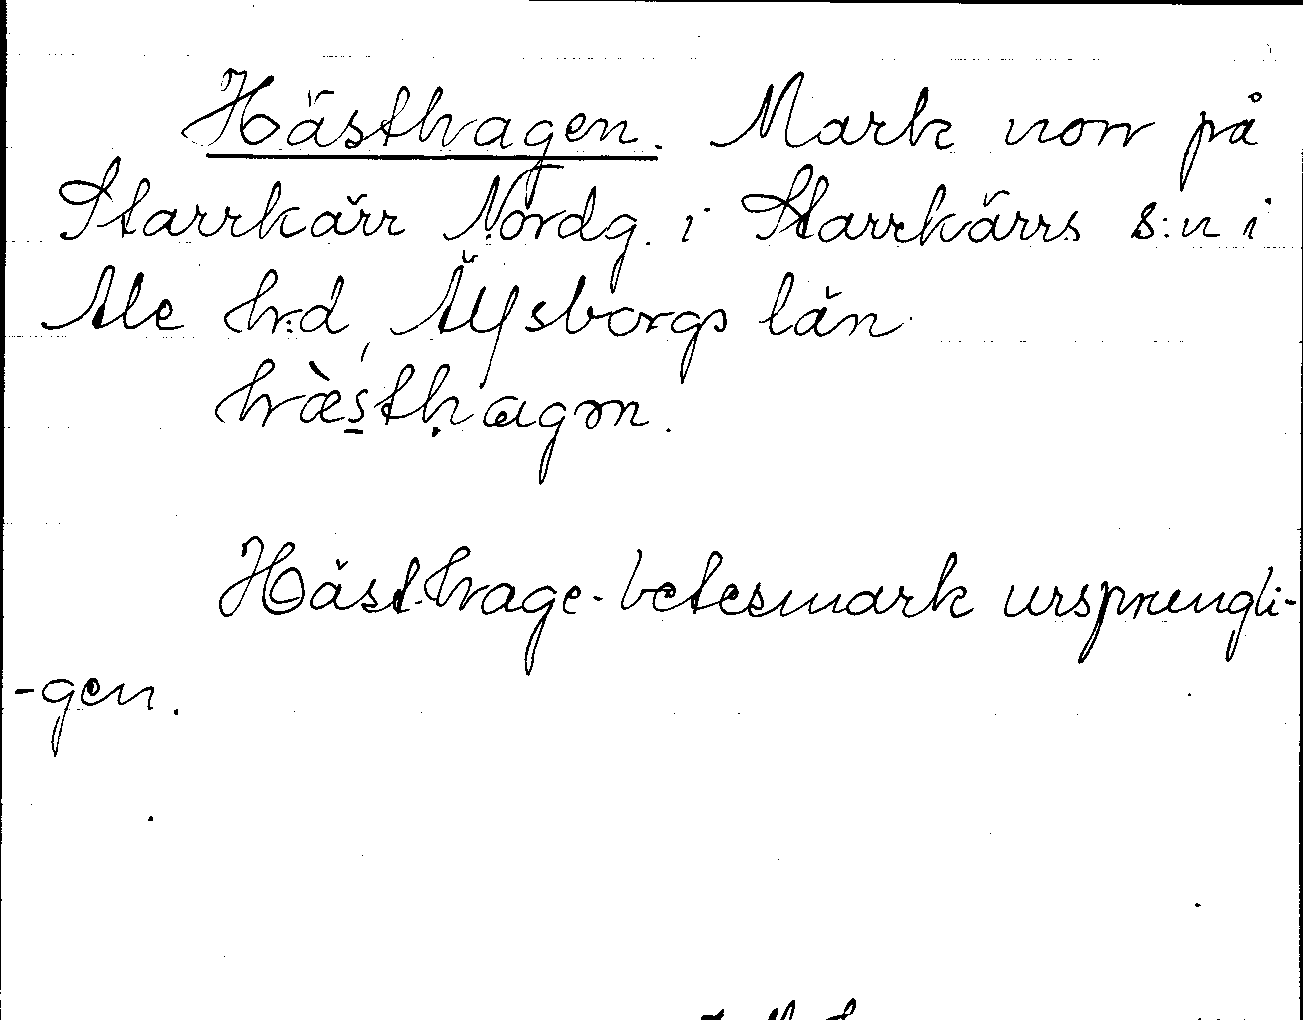 Hästhagen. Mark norr på
Starrkärr Nordg. i Starrkärrs s:n i
Ale h:d, Älfsborgs län.
hæ̀sthagɷn.
Häst-hage-betesmark ursprungli-
-gen.